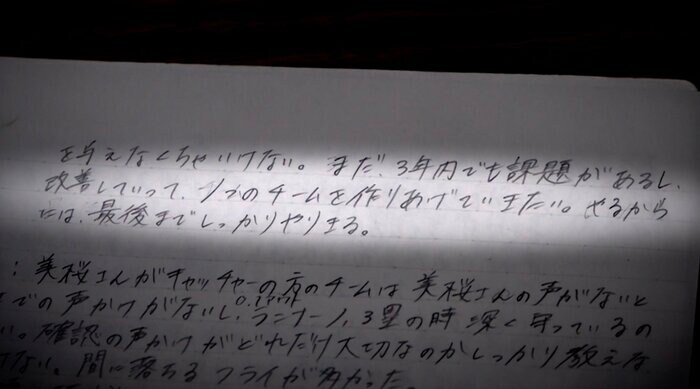 を与えなくちゃいけない。まだ、3年内でも課題があるし、
改善していって、1つのチームを作りあげていきたい。やるから
には、最後までしっかりやりきる。
：美桜さんがキャッチャーの方のチームは美桜さんの声がないと
までの声かけがないし、ランナー1,3塁の時深く守っているの
い。確認の声かけがどれだけ大切なのかしっかり教えな
けない。間に落ちるフライが多かった。